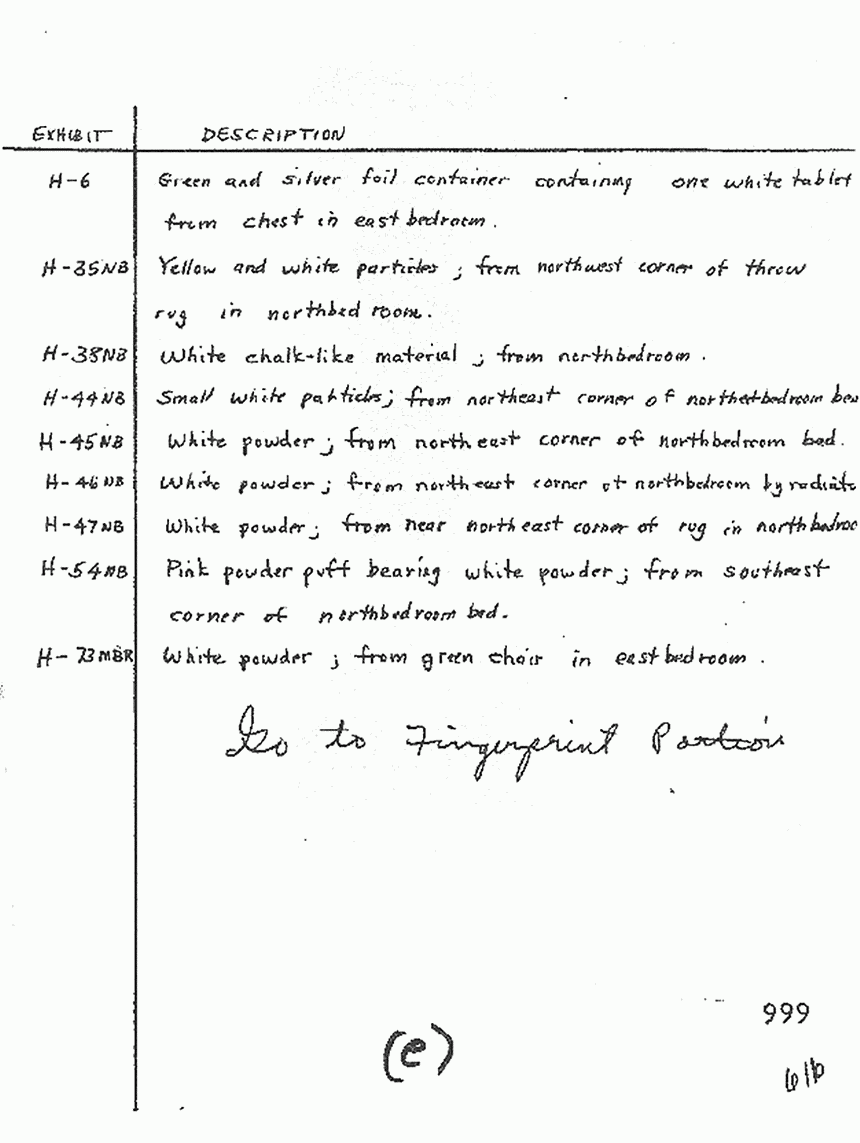 EXHIBIT DESCRIPTION
H-6 Green and silver foil container containing one white tablet
from chest in east bedroom.
H-35NB Yellow and white particles; from northwest corner of throw
rug in northbed room.
H-38NB White chalk-like material; from northbedroom.
H-44NB Small white particles; from northeast corner of
H-45NB White powder; from northeast corner of northbedroom bed.
H-46NB White powder; from northeast corner of northbedroom by radiato
H-47NB White powder; from near northeast corner of rug in northbedroo
H-54NB Pink powder puff bearing white powder; from southeast
corner of northbedroom bed.
H-73MBR White powder; from green chair in eastbedroom.
Go to Fingerprint Portion
999
(e)
616